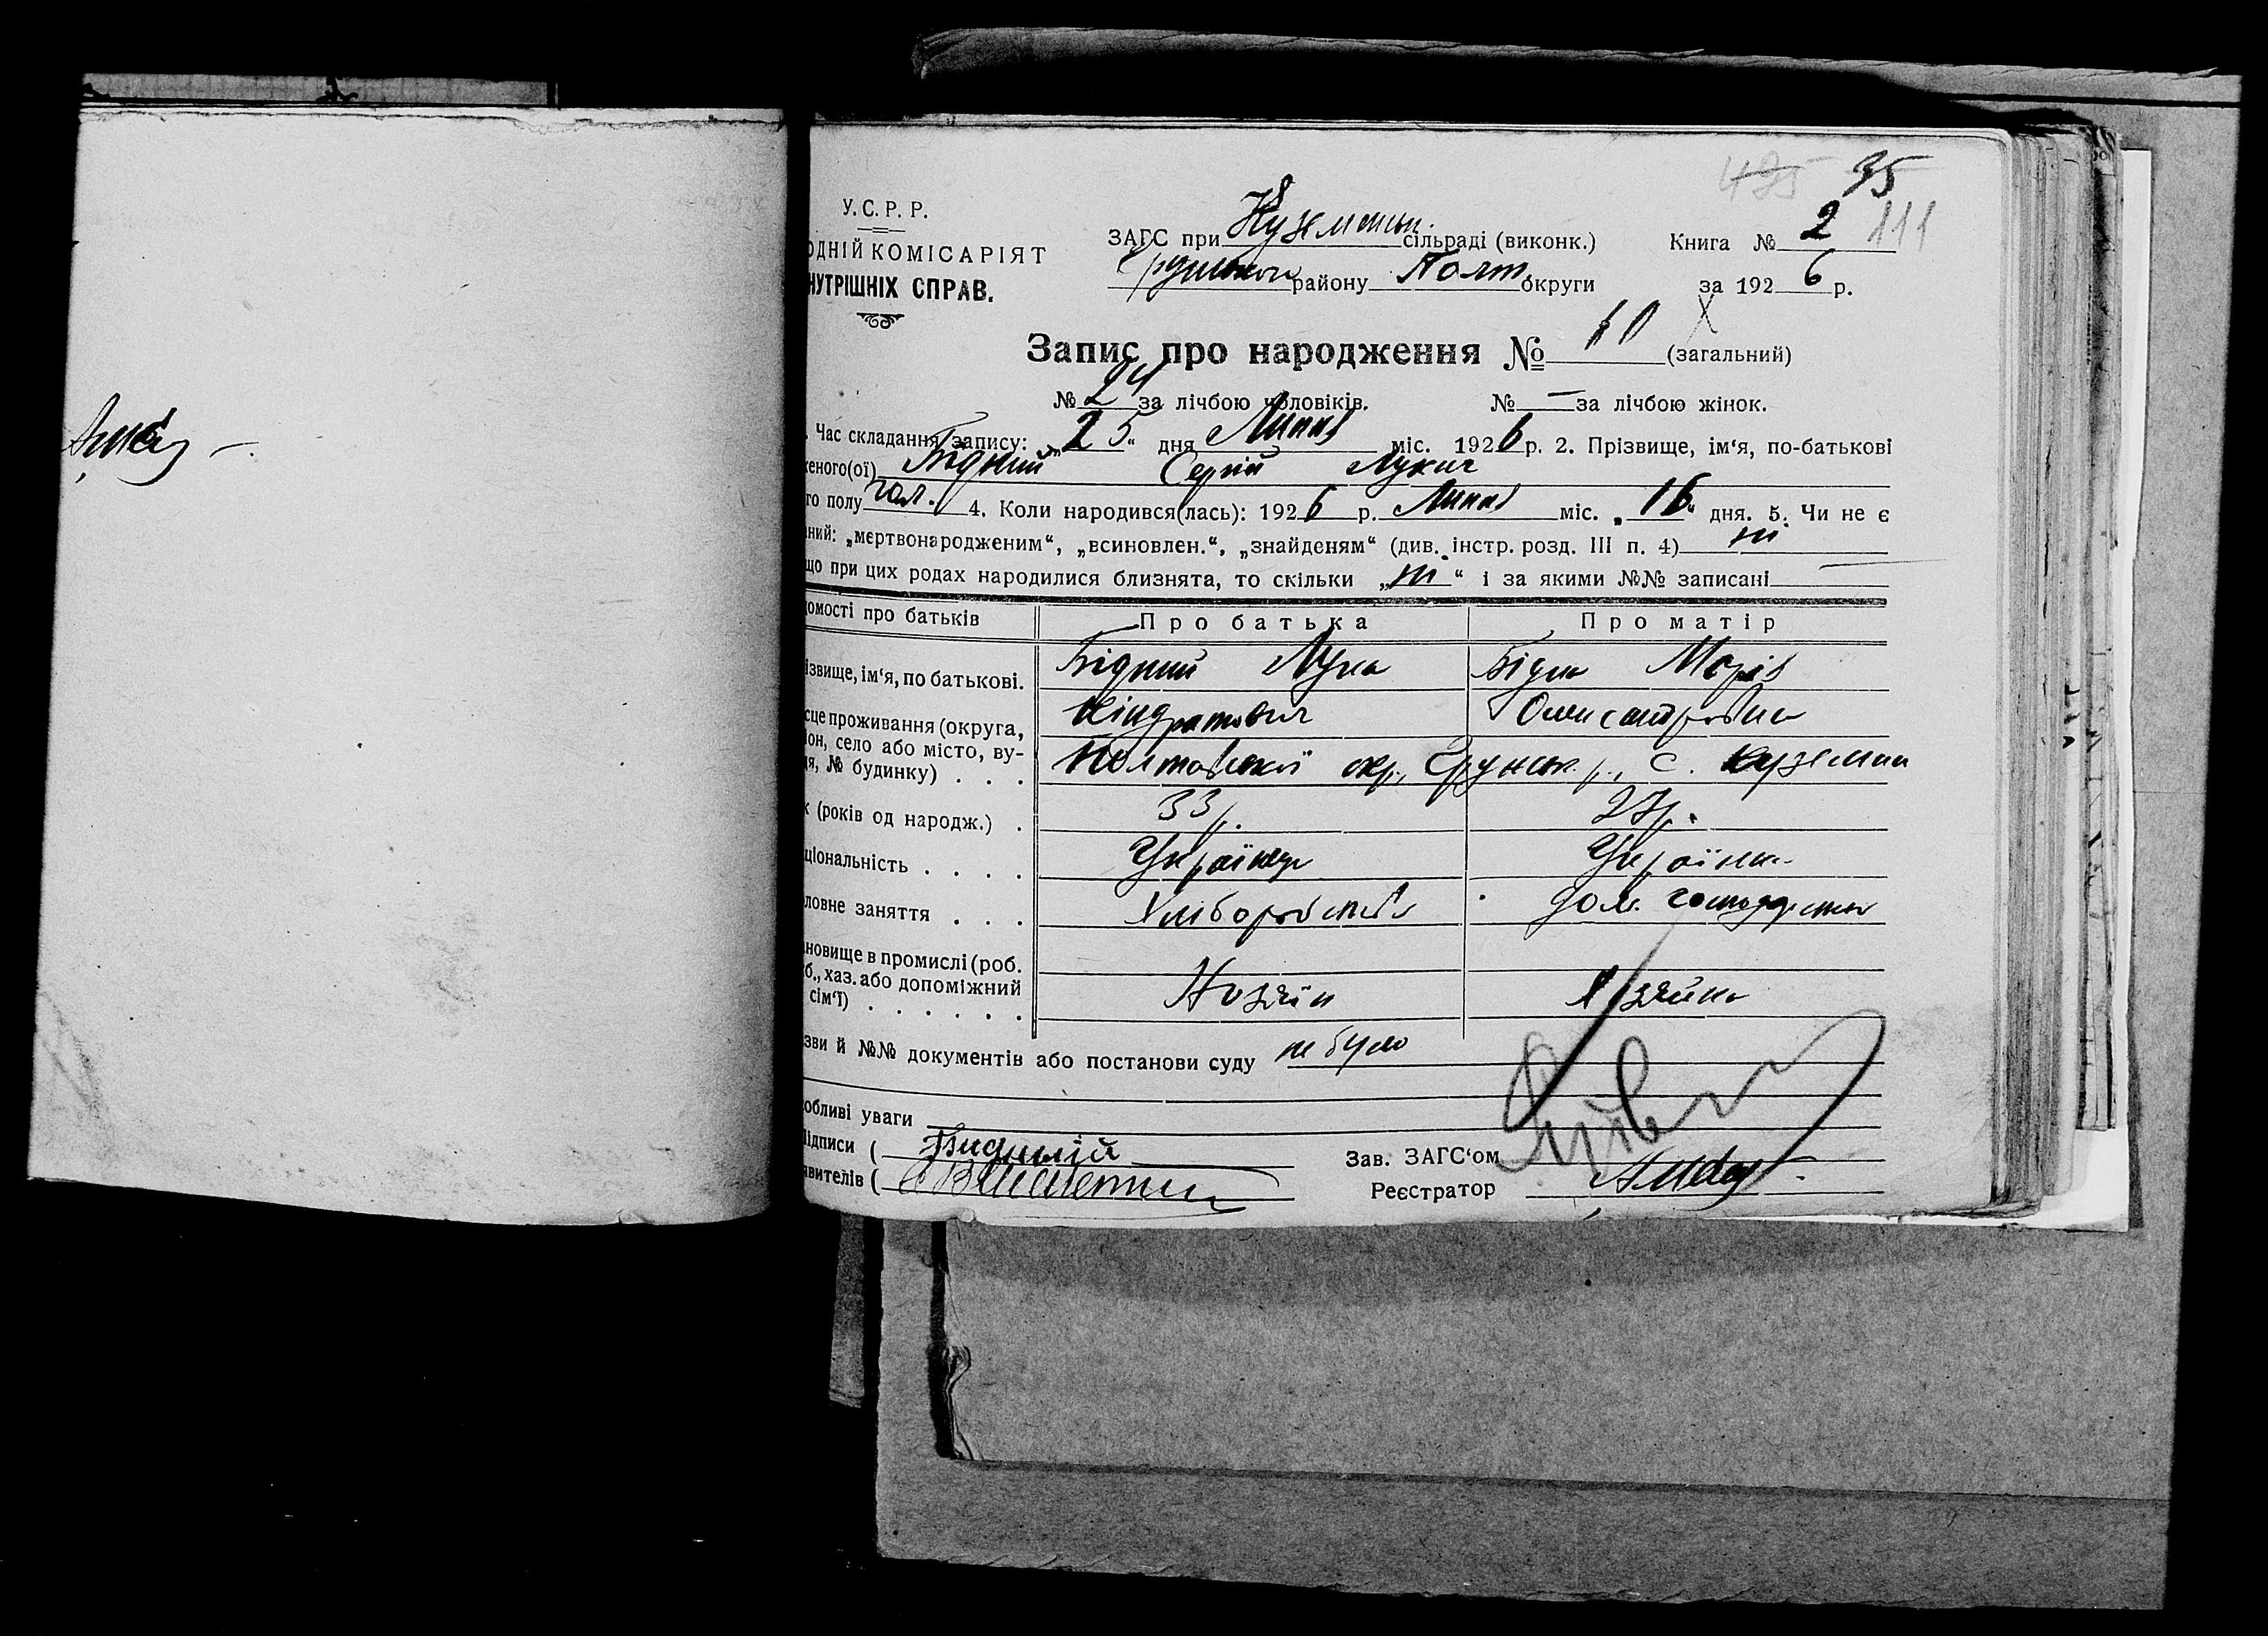 475 35
У. С. Р. Р.
ОДНІЙ КОМІСАРІЯТ
НУТРІШНІХ СПРАВ.
ЗАГС при Куземськ. сільраді (виконк.)
Книга № 2 111
Грунського району Полт. округи
за 1926 р.
Запис про народження № 60 (загальний)
№ 24 за лічбою чоловіків. № — за лічбою жінок.
. Час складання запису: „25“ дня Липня міс. 1926 р. 2. Прізвище, ім‘я, по-батькові
женого(ої) Бідний Сергій Лукич
го полу чол. 4. Коли народився(лась): 1926 р. Липня міс. „16“ дня. 5. Чи не є
аний: „мертвонародженим“, „всиновлен.“, „знайденям“ (див. інстр. розд. III п. 4) ні
що при цих родах народилися близнята, то скільки „ні“ і за якими №№ записані —
домості про батьків Про батька Про матір
ізвище, ім‘я, по батькові. Бідний Лука Бідна Марія
Кіндратович Олександровна
сце проживання (округа,
йон, село або місто, ву-
ця, № будинку) . . . Полтавської окр., Грунськ. р., с. Куземин
к (років од народж.) . 33 р. 27 р.
ціональність . . . . Українець Українка
ловне заняття . . . Хліборобство дом. господарство
новище в промислі (роб.
б., хаз. або допоміжний
сім‘ї) . . . . . . Хозяїн Хозяйка
зви й №№ документів або постанови суду не було
собливі уваги
Підписи ( Бидний
явителів (
Зав. ЗАГС‘ом
Реєстратор